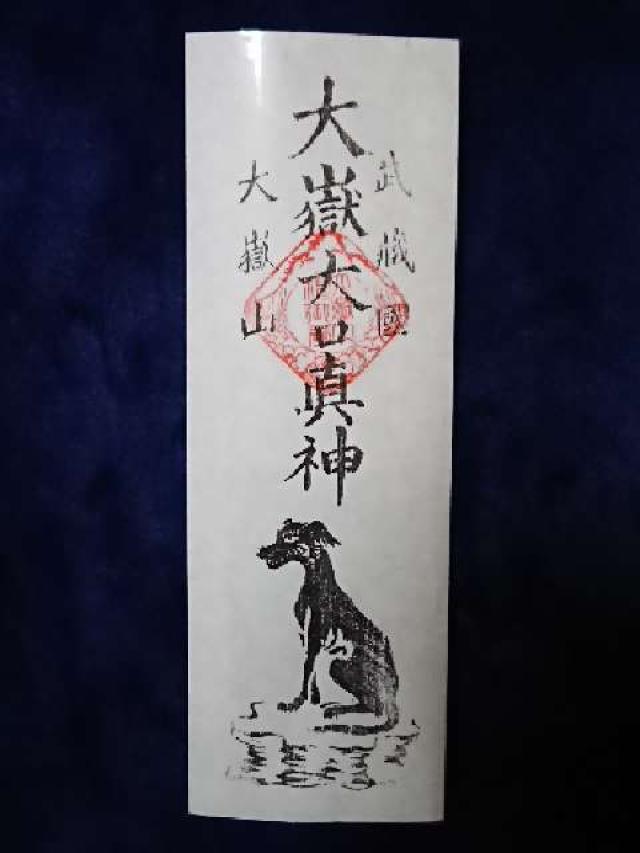 武蔵國
大嶽大口真神
大嶽山